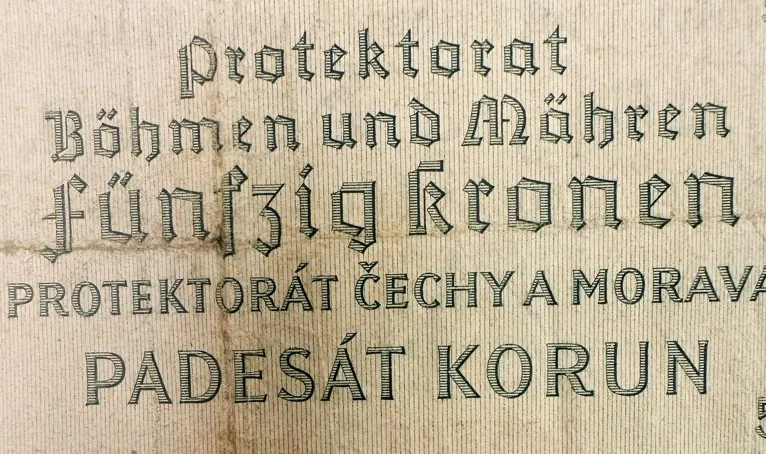 Protektorat
Böhmen und Mähren
Fünfzig Kronen
PROTEKTORÁT ČECHY A MORAVA
PADESÁT KORUN